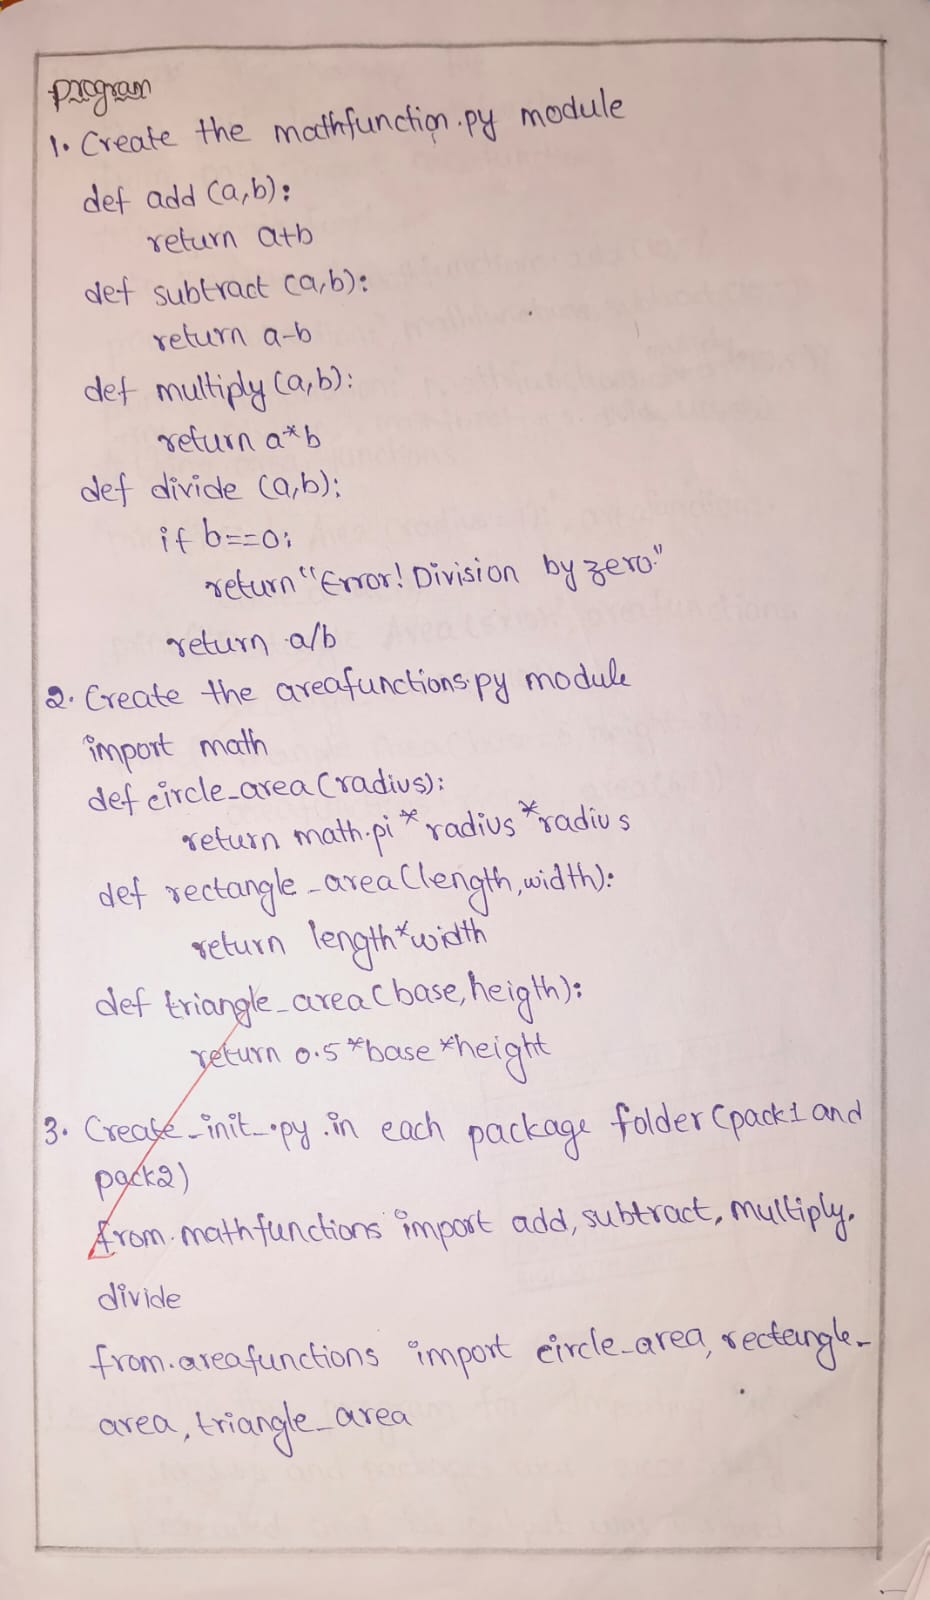 Program
1. Create the mathfunction.py module
def add (a,b):
return a+b
def subtract (a,b):
return a-b
def multiply (a,b):
return a*b
def divide (a,b):
if b==0:
return "Error! Division by zero."
return a/b
2. Create the areafunctions.py module
import math
def circle_area (radius):
return math.pi * radius * radius
def rectangle_area (length, width):
return length*width
def triangle_area (base, heigth):
return 0.5 *base *height
3. Create _init_.py in each package folder (pack1 and
pack2)
from.mathfunctions import add, subtract, multiply,
divide
from.areafunctions import circle_area, rectangle_
area, triangle_area